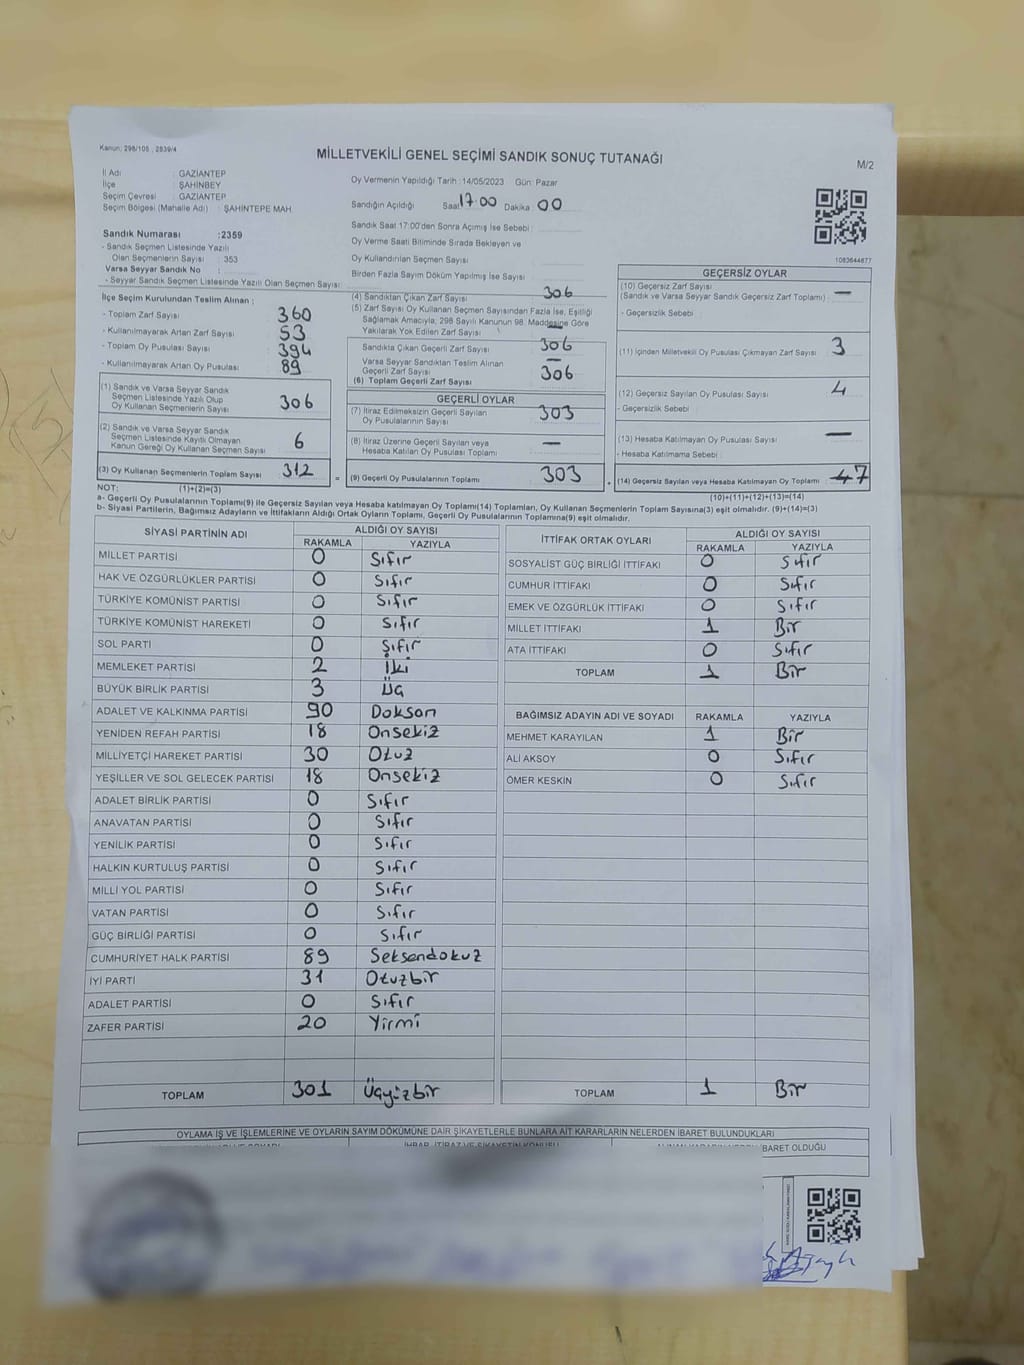 Kanun; 298/105 ; 2839/4
MİLLETVEKİLİ GENEL SEÇİMİ SANDIK SONUÇ TUTANAĞI
M/2
İl Adı : GAZİANTEP
İlçe : ŞAHİNBEY
Seçim Çevresi : GAZİANTEP
Seçim Bölgesi (Mahalle Adı) : ŞAHİNTEPE MAH.
Sandık Numarası :2359
- Sandık Seçmen Listesinde Yazılı
Olan Seçmenlerin Sayısı : 353
Varsa Seyyar Sandık No :
- Seyyar Sandık Seçmen Listesinde Yazılı Olan Seçmen Sayısı:
Oy Vermenin Yapıldığı Tarih : 14/05/2023 Gün: Pazar
Sandığın Açıldığı Saat 17:00 Dakika 00
Sandık Saat 17:00'den Sonra Açımış İse Sebebi :
Oy Verme Saati Bitiminde Sırada Bekleyen ve
Oy Kullandırılan Seçmen Sayısı :
Birden Fazla Sayım Döküm Yapılmış İse Sayısı :
1083644877
İlçe Seçim Kurulundan Teslim Alınan ;
- Toplam Zarf Sayısı : 360
- Kullanılmayarak Artan Zarf Sayısı : 53
- Toplam Oy Pusulası Sayısı : 394
- Kullanılmayarak Artan Oy Pusulası : 89
(1) Sandık ve Varsa Seyyar Sandık
Seçmen Listesinde Yazılı Olup
Oy Kullanan Seçmenlerin Sayısı 306
(2) Sandık ve Varsa Seyyar Sandık
Seçmen Listesinde Kayıtlı Olmayan
Kanun Gereği Oy Kullanan Seçmen Sayısı 6
(3) Oy Kullanan Seçmenlerin Toplam Sayısı 312 =
(4) Sandıktan Çıkan Zarf Sayısı 306
(5) Zarf Sayısı Oy Kullanan Seçmen Sayısından Fazla İse, Eşitliği
Sağlamak Amacıyla, 298 Sayılı Kanunun 98. Maddesine Göre
Yakılarak Yok Edilen Zarf Sayısı : —
Sandıkta Çıkan Geçerli Zarf Sayısı 306
Varsa Seyyar Sandıktan Teslim Alınan
Geçerli Zarf Sayısı —
(6) Toplam Geçerli Zarf Sayısı 306
GEÇERLİ OYLAR
(7) İtiraz Edilmeksizin Geçerli Sayılan
Oy Pusulalarının Sayısı 303
(8) İtiraz Üzerine Geçerli Sayılan veya
Hesaba Katılan Oy Pusulası Toplamı —
(9) Geçerli Oy Pusulalarının Toplamı 303 +
GEÇERSİZ OYLAR
(10) Geçersiz Zarf Sayısı
(Sandık ve Varsa Seyyar Sandık Geçersiz Zarf Toplamı) : —
- Geçersizlik Sebebi :
(11) İçinden Milletvekili Oy Pusulası Çıkmayan Zarf Sayısı : 3
(12) Geçersiz Sayılan Oy Pusulası Sayısı : 4
- Geçersizlik Sebebi :
(13) Hesaba Katılmayan Oy Pusulası Sayısı : —
- Hesaba Katılmama Sebebi :
(14) Geçersiz Sayılan veya Hesaba Katılmayan Oy Toplamı
NOT: (1)+(2)=(3)
(10)+(11)+(12)+(13)=(14)
a- Geçerli Oy Pusulalarının Toplamı(9) ile Geçersiz Sayılan veya Hesaba katılmayan Oy Toplamı(14) Toplamları, Oy Kullanan Seçmenlerin Toplam Sayısına(3) eşit olmalıdır. (9)+(14)=(3)
b- Siyasi Partilerin, Bağımsız Adayların ve İttifakların Aldığı Ortak Oyların Toplamı, Geçerli Oy Pusulalarının Toplamına(9) eşit olmalıdır.
SİYASİ PARTİNİN ADI ALDIĞI OY SAYISI
RAKAMLA YAZIYLA
MİLLET PARTİSİ 0 Sıfır
HAK VE ÖZGÜRLÜKLER PARTİSİ 0 Sıfır
TÜRKİYE KOMÜNİST PARTİSİ 0 Sıfır
TÜRKİYE KOMÜNİST HAREKETİ 0 Sıfır
SOL PARTİ 0 Sıfır
MEMLEKET PARTİSİ 2 İki
BÜYÜK BİRLİK PARTİSİ 3 Üç
ADALET VE KALKINMA PARTİSİ 90 Doksan
YENİDEN REFAH PARTİSİ 18 Onsekiz
MİLLİYETÇİ HAREKET PARTİSİ 30 Otuz
YEŞİLLER VE SOL GELECEK PARTİSİ 18 Onsekiz
ADALET BİRLİK PARTİSİ 0 Sıfır
ANAVATAN PARTİSİ 0 Sıfır
YENİLİK PARTİSİ 0 Sıfır
HALKIN KURTULUŞ PARTİSİ 0 Sıfır
MİLLİ YOL PARTİSİ 0 Sıfır
VATAN PARTİSİ 0 Sıfır
GÜÇ BİRLİĞİ PARTİSİ 0 Sıfır
CUMHURİYET HALK PARTİSİ 89 Seksendokuz
İYİ PARTİ 31 Otuzbir
ADALET PARTİSİ 0 Sıfır
ZAFER PARTİSİ 20 Yirmi
TOPLAM 301 Üçyüzbir
İTTİFAK ORTAK OYLARI ALDIĞI OY SAYISI
RAKAMLA YAZIYLA
SOSYALİST GÜÇ BİRLİĞİ İTTİFAKI 0 Sıfır
CUMHUR İTTİFAKI 0 Sıfır
EMEK VE ÖZGÜRLÜK İTTİFAKI 0 Sıfır
MİLLET İTTİFAKI 1 Bir
ATA İTTİFAKI 0 Sıfır
TOPLAM 1 Bir
BAĞIMSIZ ADAYIN ADI VE SOYADI RAKAMLA YAZIYLA
MEHMET KARAYILAN 1 Bir
ALİ AKSOY 0 Sıfır
ÖMER KESKİN 0 Sıfır
TOPLAM 1 Bir
OYLAMA İŞ VE İŞLEMLERİNE VE OYLARIN SAYIM DÖKÜMÜNE DAİR ŞİKAYETLERLE BUNLARA AİT KARARLARIN NELERDEN İBARET BULUNDUKLARI
İHBAR, İTİRAZ VE ŞİKAYETİN KONUSU
İBARET OLDUĞU